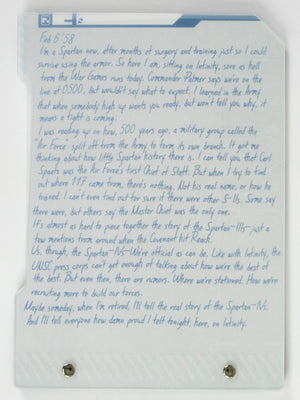 2
Feb 6 '58
I'm a Spartan now, after months of surgery and training just so I could
survive using the armor. So here I am, sitting on Infinity, sore as hell
from the War Games runs today. Commander Palmer says we're on the
line at 0500, but wouldn't say what to expect. I learned in the Army
that when somebody high up wants you ready, but won't tell you why, it
means a fight is coming.
I was reading up on how, 500 years ago, a military group called the
Air Force split off from the Army to form its own branch. It got me
thinking about how little Spartan history there is. I can tell you that Carl
Spaatz was the Air Force's first Chief of Staff. But when I try to find
out where 117 came from, there's nothing. Not his real name, or how he
trained. I can't even find out for sure if there were other S-IIs. Some say
there were, but others say the Master Chief was the only one.
It's almost as hard to piece together the story of the Spartan-IIIs-just a
few mentions from around when the Covenant hit Reach.
Us, though, the Spartan-IVs-We're official as can be. Like with Infinity, the
UNSC press corps can't get enough of talking about how we're the best of
the best. But even then, there are rumors. Where we're stationed. How we're
recruiting more to build our forces.
Maybe someday, when I'm retired, I'll tell the real story of the Spartan-IVs.
And I'll tell everyone how damn proud I felt tonight, here, on Infinity.